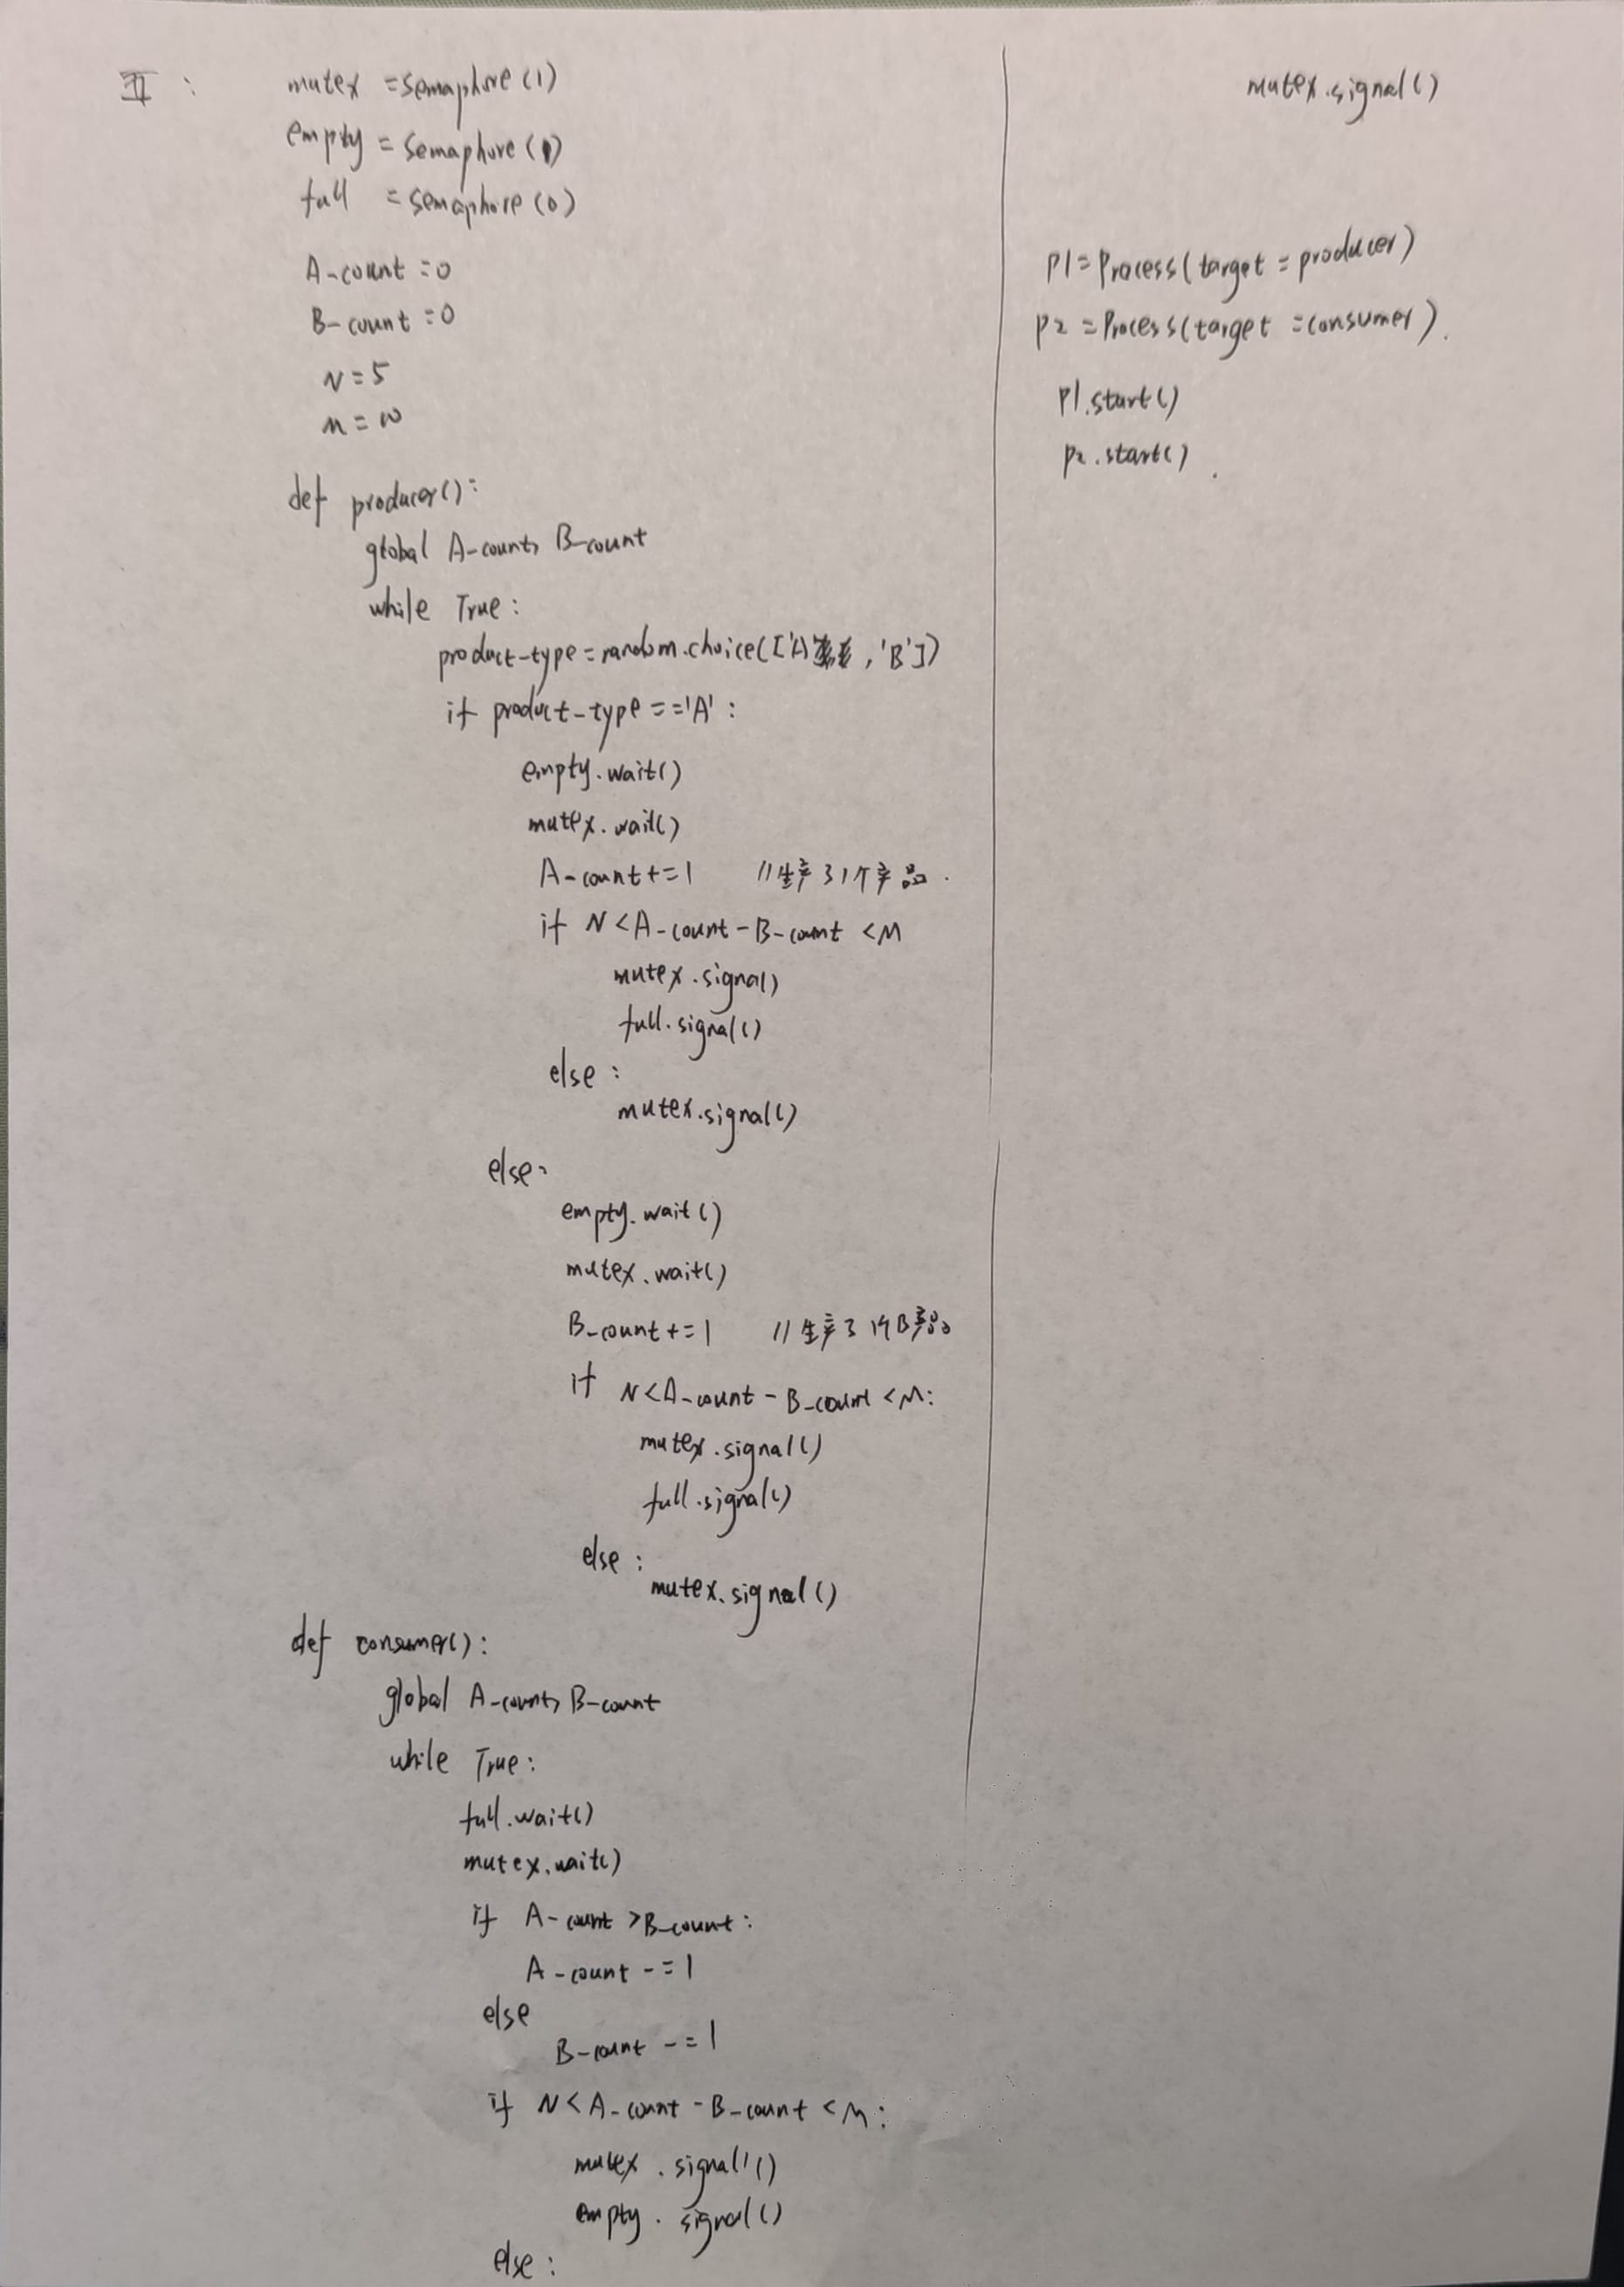 II :
mutex = Semaphore (1)
empty = Semaphore (1)
full = Semaphore (0)
A-count = 0
B-count = 0
N = 5
m = 10
def producer():
global A-count, B-count
while True:
product-type = random.choice(['A' , 'B'])
if product-type == 'A' :
empty.wait()
mutex.wait()
A-count += 1 //生产了1个产品.
if N < A-count - B-count < M
mutex.signal)
full.signal()
else :
mutex.signal()
else:
empty.wait()
mutex.wait()
B-count += 1 //生产了1个B产品
if N < A-count - B-count < M:
mutex.signal()
full.signal()
else :
mutex.signal()
def consumer():
global A-count, B-count
while True:
full.wait()
mutex.wait()
if A-count > B-count :
A-count -= 1
else
B-count -= 1
if N < A-count - B-count < M :
mutex.signal()
empty.signal()
else :
mutex.signal()
P1 = Process(target = producer)
P2 = Process(target = consumer).
P1.start()
P2.start().